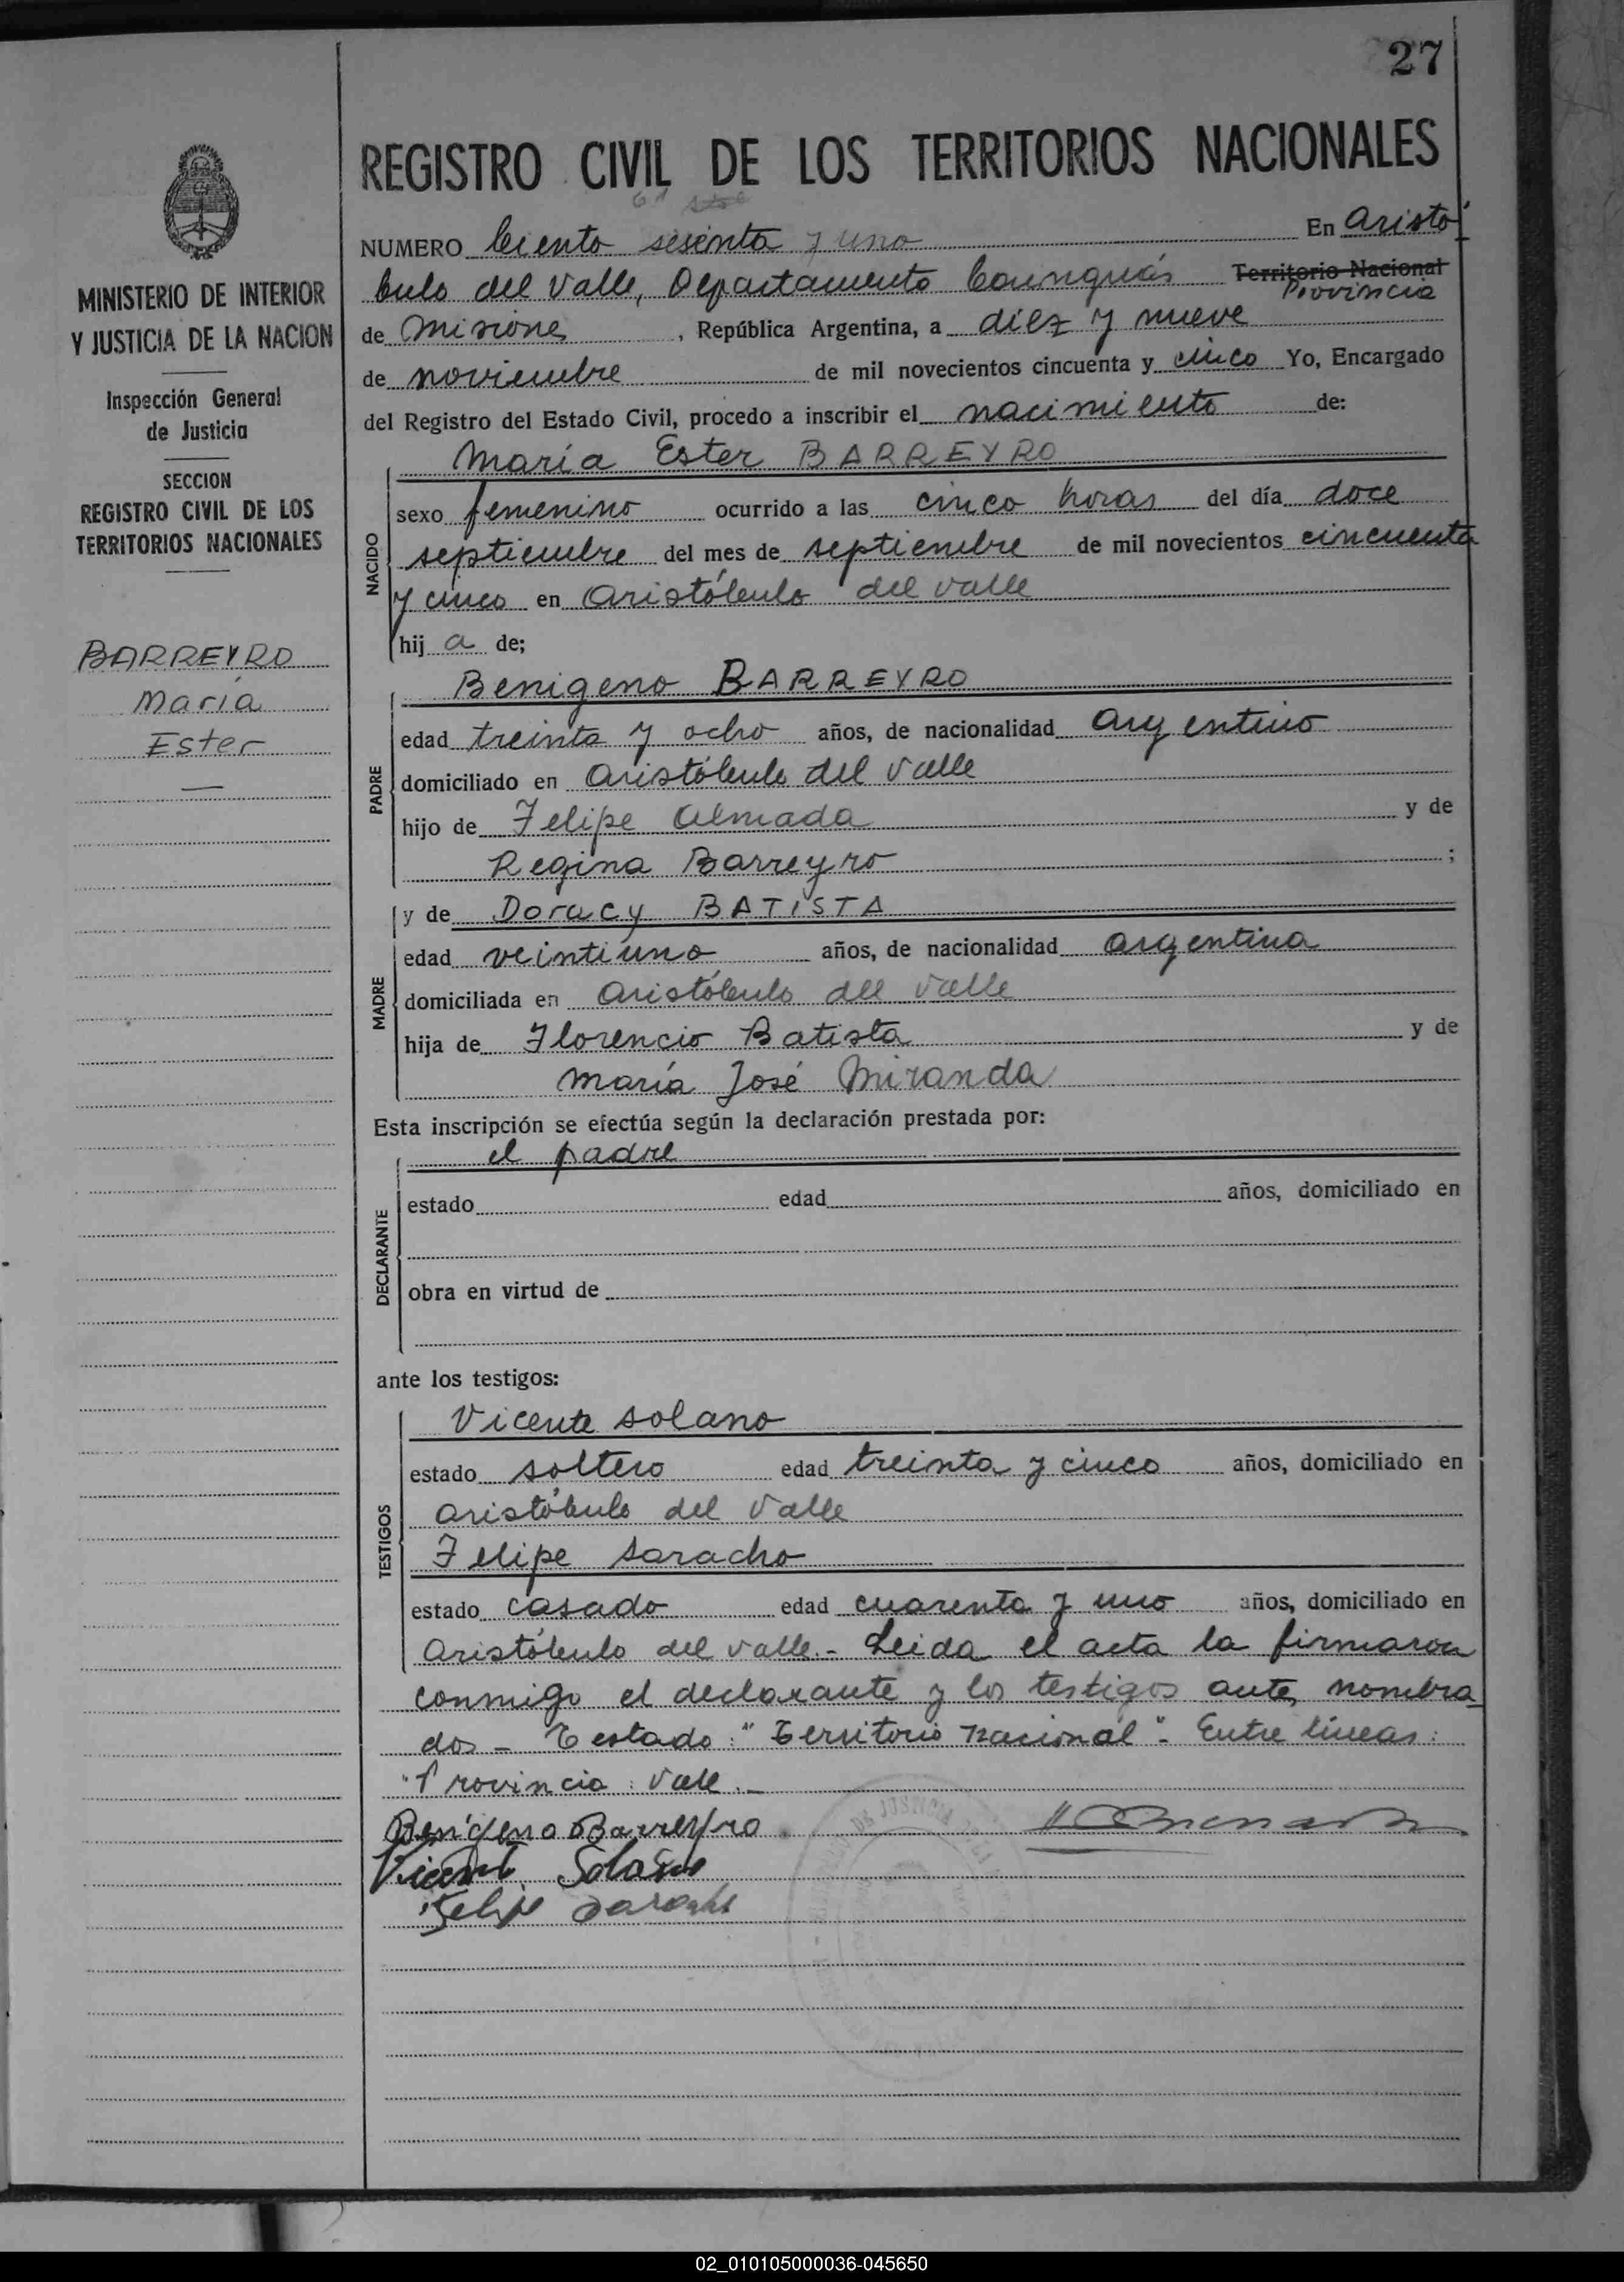 27
REGISTRO CIVIL DE LOS TERRITORIOS NACIONALES
NUMERO Ciento sesenta y uno En Aristó
bulo del Valle, Departamento Cainguás Territorio Nacional
Provincia
de Misiones, República Argentina, a diez y nueve
de noviembre de mil novecientos cincuenta y cinco Yo, Encargado
del Registro del Estado Civil, procedo a inscribir el nacimiento de:
MINISTERIO DE INTERIOR
Y JUSTICIA DE LA NACION
Inspección General
de Justicia
SECCION
REGISTRO CIVIL DE LOS
TERRITORIOS NACIONALES
BARREYRO
María
Ester
—
NACIDO
María Ester BARREYRO
sexo femenino ocurrido a las cinco horas del día doce
septiembre del mes de septiembre de mil novecientos cincuenta
y cinco en Aristóbulo del Valle
hij a de;
PADRE
Benigeno BARREYRO
edad treinta y ocho años, de nacionalidad Argentino
domiciliado en Aristóbulo del Valle
hijo de Felipe Almada y de
Regina Barreyro ;
MADRE
y de Doracy BATISTA
edad veintiuno años, de nacionalidad argentina
domiciliada en Aristóbulo del Valle
hija de Florencio Batista y de
María José Miranda
Esta inscripción se efectúa según la declaración prestada por:
DECLARANTE
el padre
estado edad años, domiciliado en
obra en virtud de
ante los testigos:
TESTIGOS
Vicente Solano
estado soltero edad treinta y cinco años, domiciliado en
Aristóbulo del Valle
Felipe Saracho
estado casado edad cuarenta y uno años, domiciliado en
Aristóbulo del Valle.- Leida el acta la firmaron
conmigo el declarante y los testigos antes nombra
dos - Testado: "Territorio Nacional". Entre líneas:
"Provincia: Vale.-
Benigeno Barreyro
Vicente Solano
Felipe Saracho
02_010105000036-045650